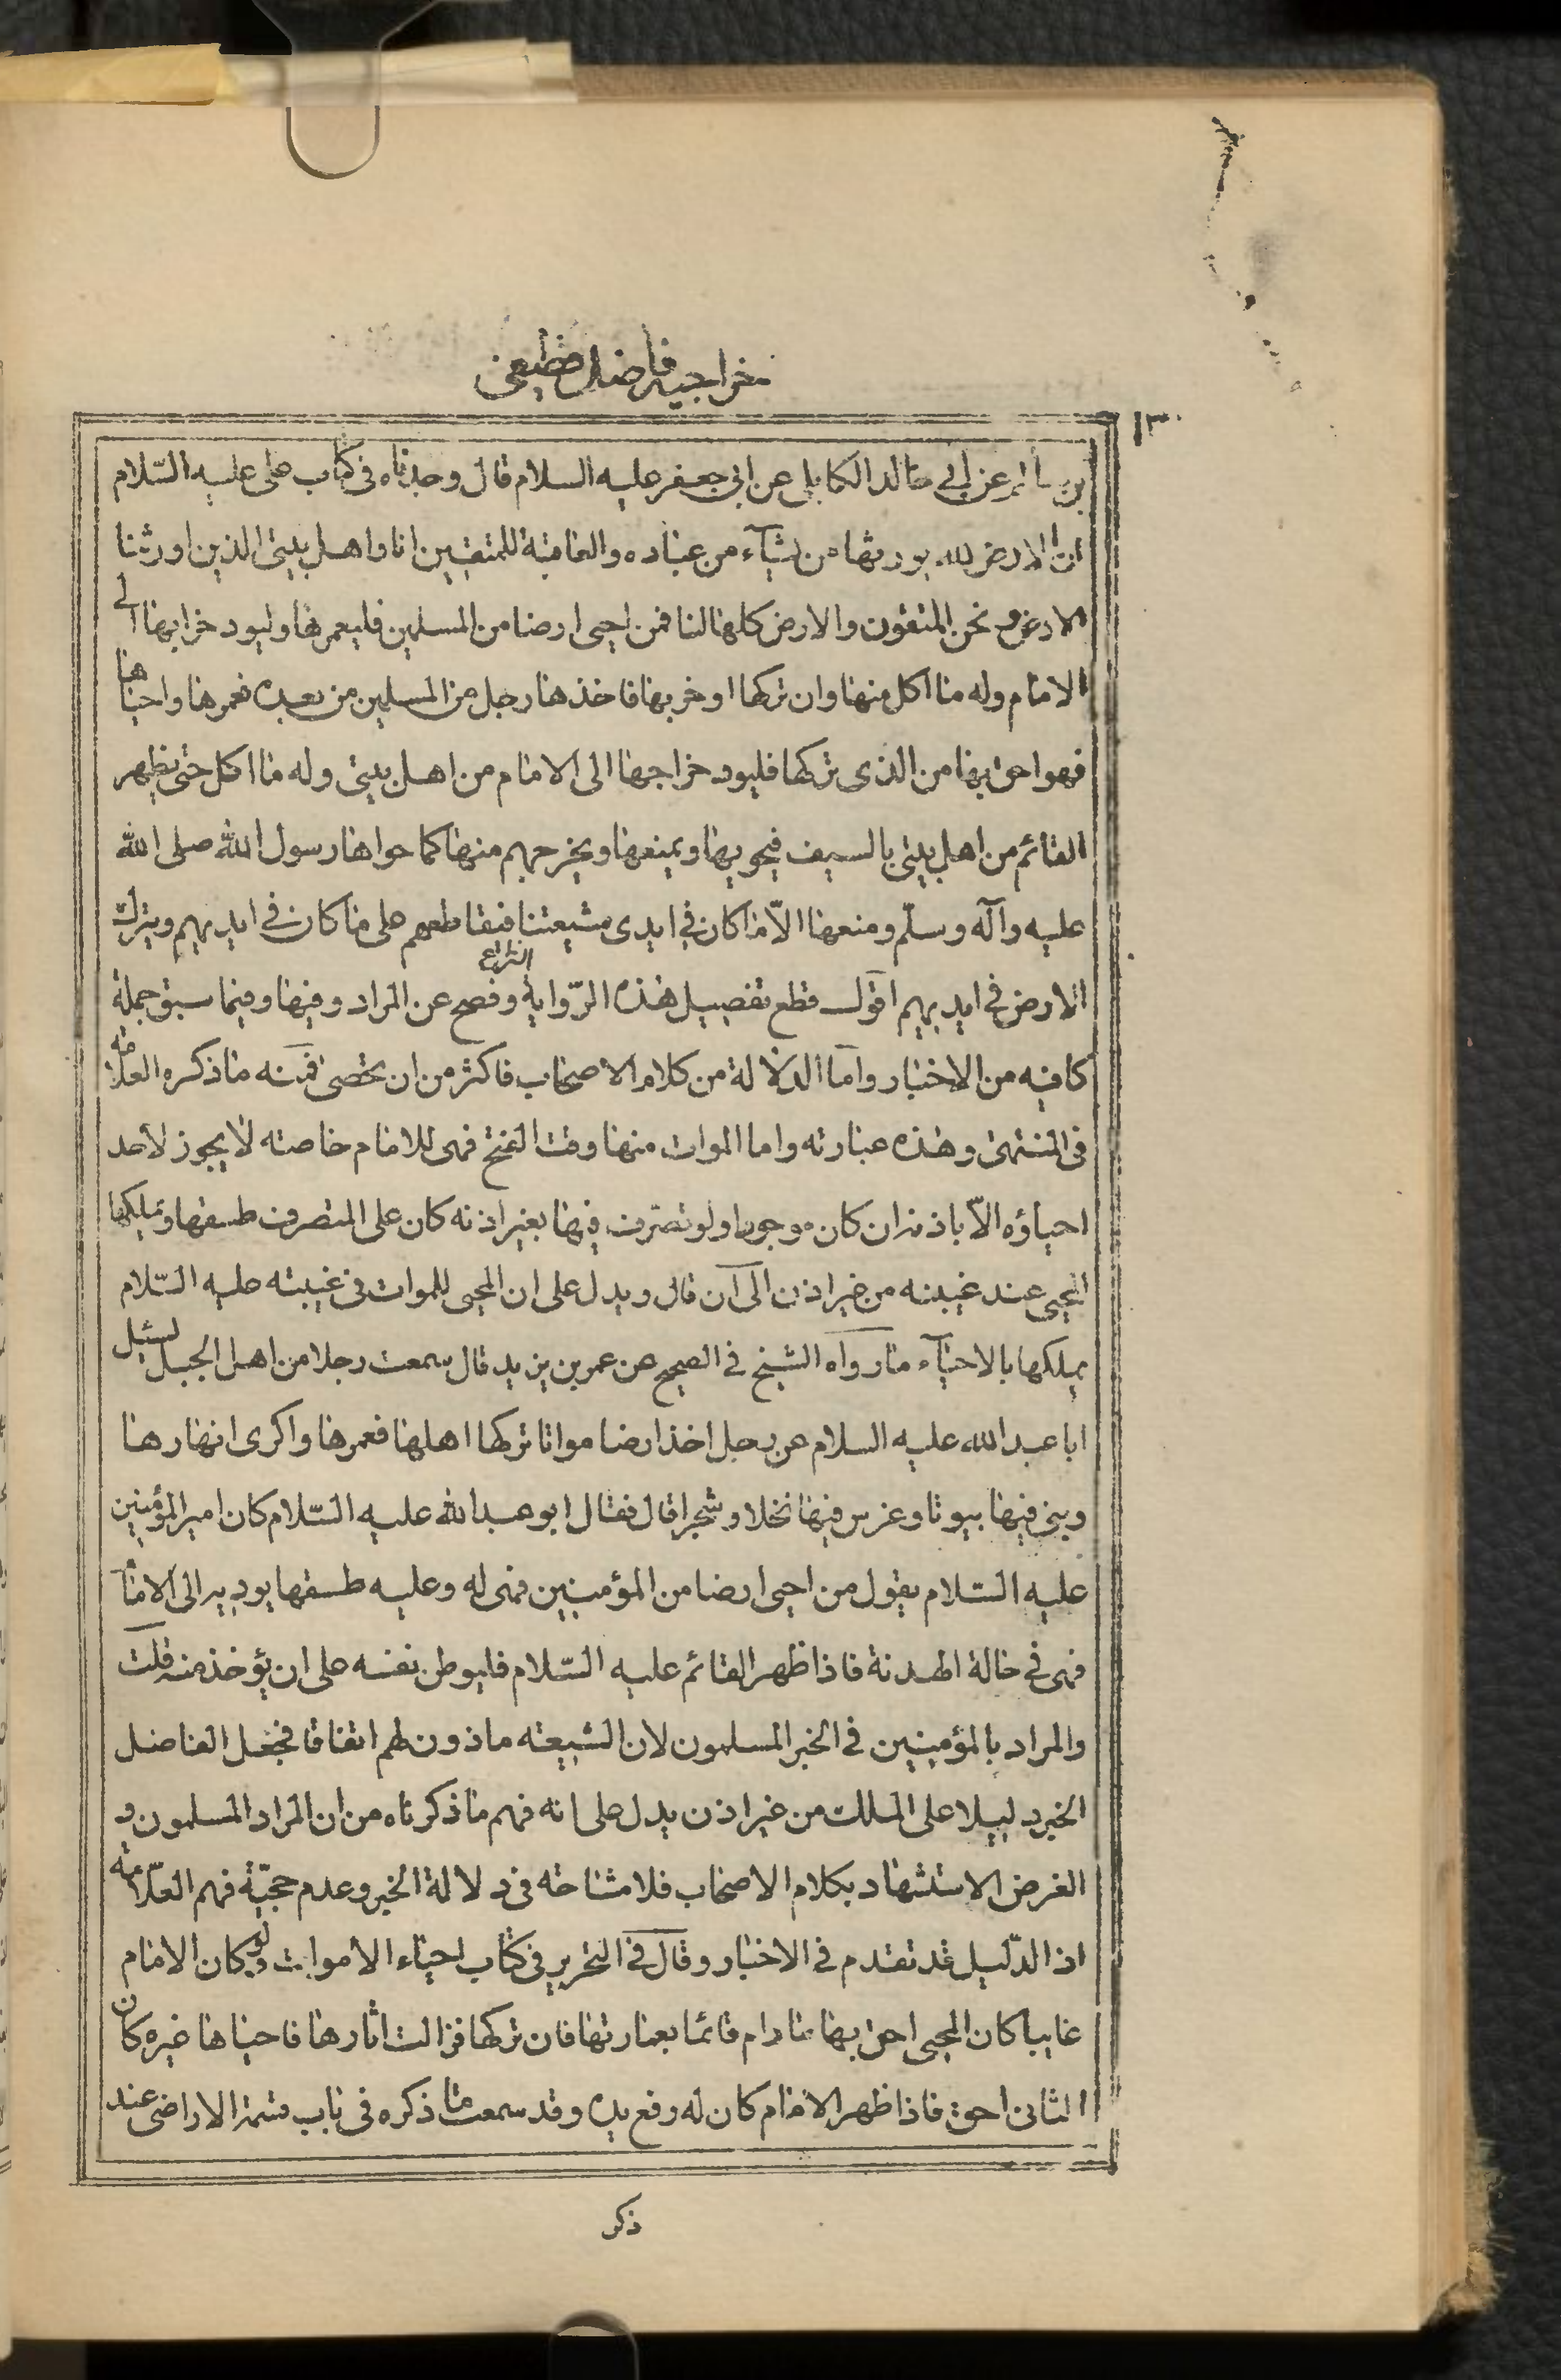 خراجيه فاضل قطيفى
١٣٠
بن سالم عن ابى خالد الكابلى عن ابى جعفر عليه السلام قال وجدناه فى كتاب على عليه السّلام
ان الارض لله يورثها من يشآء من عباده والعاقبة للمتقين انا واهل بيتى الذين اورثنا
الارض ونحن المتقون والارض كلها لنا فمن احيى ارضا من المسلمين فليعمرها وليود خرابها الى
الامام وله ما اكل منها وان تركها او خربها فاخذها رجل من المسلمين من بعده فعمرها واحياها
فهو احق بها من الذى تركها فليود خراجها الى الامام من اهل بيتى وله ما اكل حتى يظهر
القائم من اهل بيتى بالسيف فيحويها ويمنعها ويخرجهم منها كما حواها رسول الله صلى الله
عليه وآله وسلّم ومنعها الاّ ما كان فى ايدى شيعتنا فيقاطعهم على ما كان فى ايديهم ويترك
الارض فى ايديهم اقول قطع تفصيل هذه الرّواية النزاع وفصح عن المراد وفيها وفيما سبق جملة
كافيه من الاخبار واما الدلالة من كلام الاصحاب فاكثر من ان يحصى فمنه ما ذكره العلامه
فى المنتهى وهذه عبارته واما الموات منها وقت الفتح فهى للامام خاصته لا يجوز لاحد
احياؤه الاّ باذنه ان كان موجودا ولو تصّرف فيها بغير اذنه كان على المتصرف طسقها ويملكها
المحيى عند غيبته من غير اذن الى آن قال ويدل على ان المحيى للموات فى غيبته عليه السّلام
يملكها بالاحيآء ما رواه الشيخ فى الصحيح عن عمر بن يزيد قال سمعت رجلا من اهل الجبل يسئل
ابا عبد الله عليه السلام عن رجل اخذ ارضا مواتا تركها اهلها فعمرها واكرى انهارها
وبنى فيها بيوتا وغرس فيها نخلا وشجرا قال فقال ابو عبد الله عليه السّلام كان امير المؤمنين
عليه السّلام يقول من احيى ارضا من المؤمنين فهى له وعليه طسقها يوديه الى الامام
فهى فى حالة الهدنة فاذا ظهر القائم عليه السّلام فليوطن نفسه على ان يؤخذ منه قلت
والمراد بالمؤمنين فى الخبر المسلمون لان الشيعته ماذون لهم اتفاقا فجعل الفاضل
الخبر دليلا على الملك من غير اذن يدل على انه فهم ما ذكرناه من ان المراد المسلمون و
الغرض الاستشهاد بكلام الاصحاب فلا مشاحه فى دلالة الخبر وعدم حجّية فهم العلّامه
اذ الدّليل قد تقدم فى الاخبار وقال فى التحرير فى كتاب احياء الاموات ولو كان الامام
غايبا كان المحيى احق بها ما دام قائما بعمارتها فان تركها فزالت اثارها فاحياها غيره كان
الثانى احق فاذا ظهر الامام كان له رفع يده وقد سمعت ما ذكره فى باب قسمة الاراضى عند
ذكر